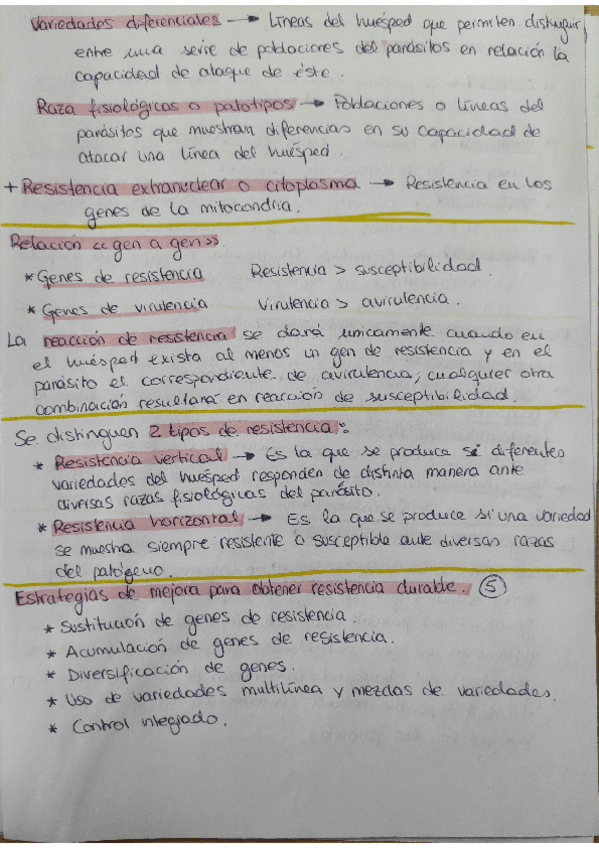 Variedades diferenciales → Líneas del huésped que permiten distinguir
entre una serie de poblaciones del parásitos en relación la
capacidad de ataque de éste.
Raza fisiológicas o patotipos → Poblaciones o líneas del
parásitos que muestran diferencias en su capacidad de
atacar una línea del huésped.
+ Resistencia extranuclear o citoplasma → Resistencia en los
genes de la mitocondria.
Relación «gen a gen».
* Genes de resistencia Resistencia > susceptibilidad.
* Genes de virulencia Virulencia > avirulencia.
La reacción de resistencia se dará unicamente cuando en
el huésped exista al menos un gen de resistencia y en el
parásito el correspondiente de avirulencia; cualquier otra
combinación resultara en reacción de susceptibilidad.
Se distinguen 2 tipos de resistencia:
* Resistencia vertical → Es la que se produce si diferentes
variedades del huésped responden de distinta manera ante
diversas razas fisiológicas del parásito.
* Resistencia horizontal → Es la que se produce si una variedad
se muestra siempre resistente o susceptible ante diversas razas
del patógeno.
Estrategias de mejora para obtener resistencia durable. 5
* Sustitución de genes de resistencia.
* Acumulación de genes de resistencia.
* Diversificación de genes.
* Uso de variedades multilínea y mezclas de variedades.
* Control integrado.